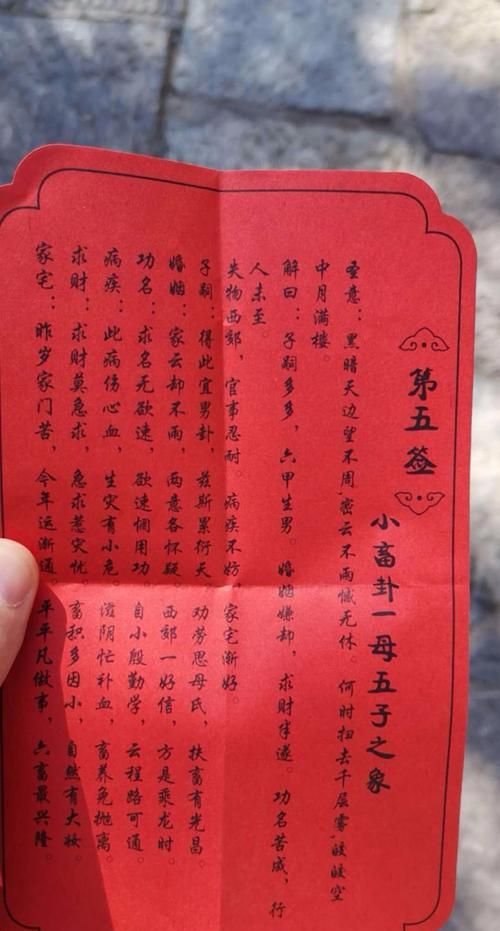 第五签
小畜卦一母五子之象
圣意：黑暗天边望不周，密云不雨憾无休。何时扫去千层雾，皎皎空
中月满楼。
解曰：子嗣多多，六甲生男。婚姻嫌却，求财半遂。功名苦成，行
人未至。
失物西郊，官事忍耐。病疾不妨，家宅渐好。
子嗣：得此宜男卦，兹斯累衍天，劝劳思母氏，扶畜有光昌。
婚姻：家云却不雨，两意各怀疑，西郊一好信，方是乘龙时。
功名：求名无欲速，欲速惘用功，自小殷勤学，云程路可通。
病疾：此病伤心血，生灾有小危，滋阴忙补血，畜养免抛离。
求财：求财莫急求，急求惹灾忧，畜积多因小，自然有大妆。
家宅：昨岁家门苦，今年运渐通，平平凡做事，六畜最兴隆。